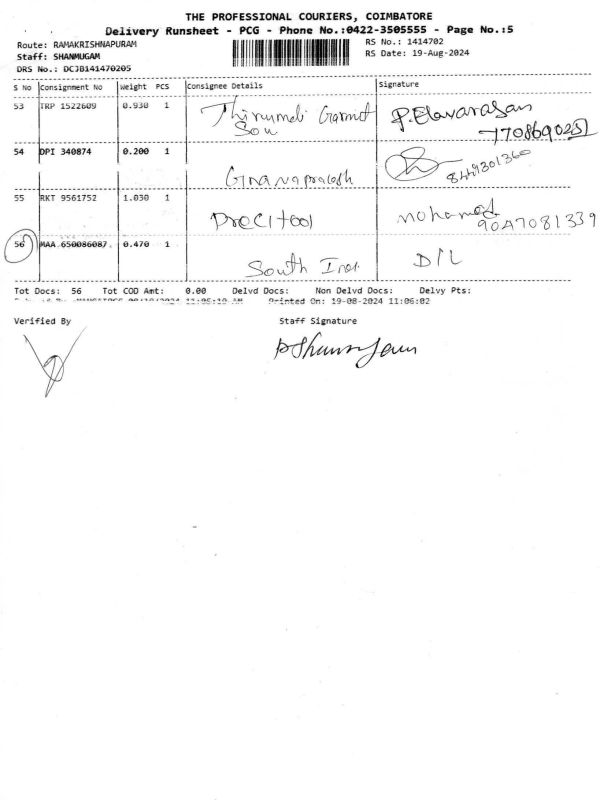 THE PROFESSIONAL COURIERS, COIMBATORE
Delivery Runsheet - PCG - Phone No.:0422-3505555 - Page No.:5
Route: RAMAKRISHNAPURAM
RS No.: 1414702
Staff: SHANMUGAM
RS Date: 19-Aug-2024
DRS No.: DCJB141470205
S No Consignment No Weight PCS Consignee Details Signature
53 TRP 1522609 0.930 1 Thirumeli Garmet P.Elavarasan
Son 7708690251
54 DPI 340874 0.200 1
Gnanaprakash 8449301360
55 RKT 9561752 1.030 1
Precitool mohamed
9047081339
56 MAA 650086087 0.470 1
South Iron D/L
Tot Docs: 56 Tot COD Amt: 0.00 Delvd Docs: Non Delvd Docs: Delvy Pts:
Printed On: 19-08-2024 11:06:02
Verified By Staff Signature